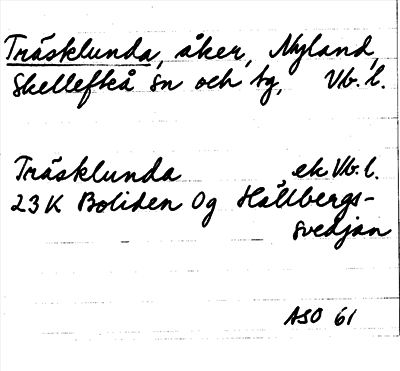 Träsklunda, åker, Nyland,
Skellefteå sn och tg, Vb. l.
Träsklunda ek Vb. l.
23K Boliden 0g Hällbergs-
svedjan
ASO 61